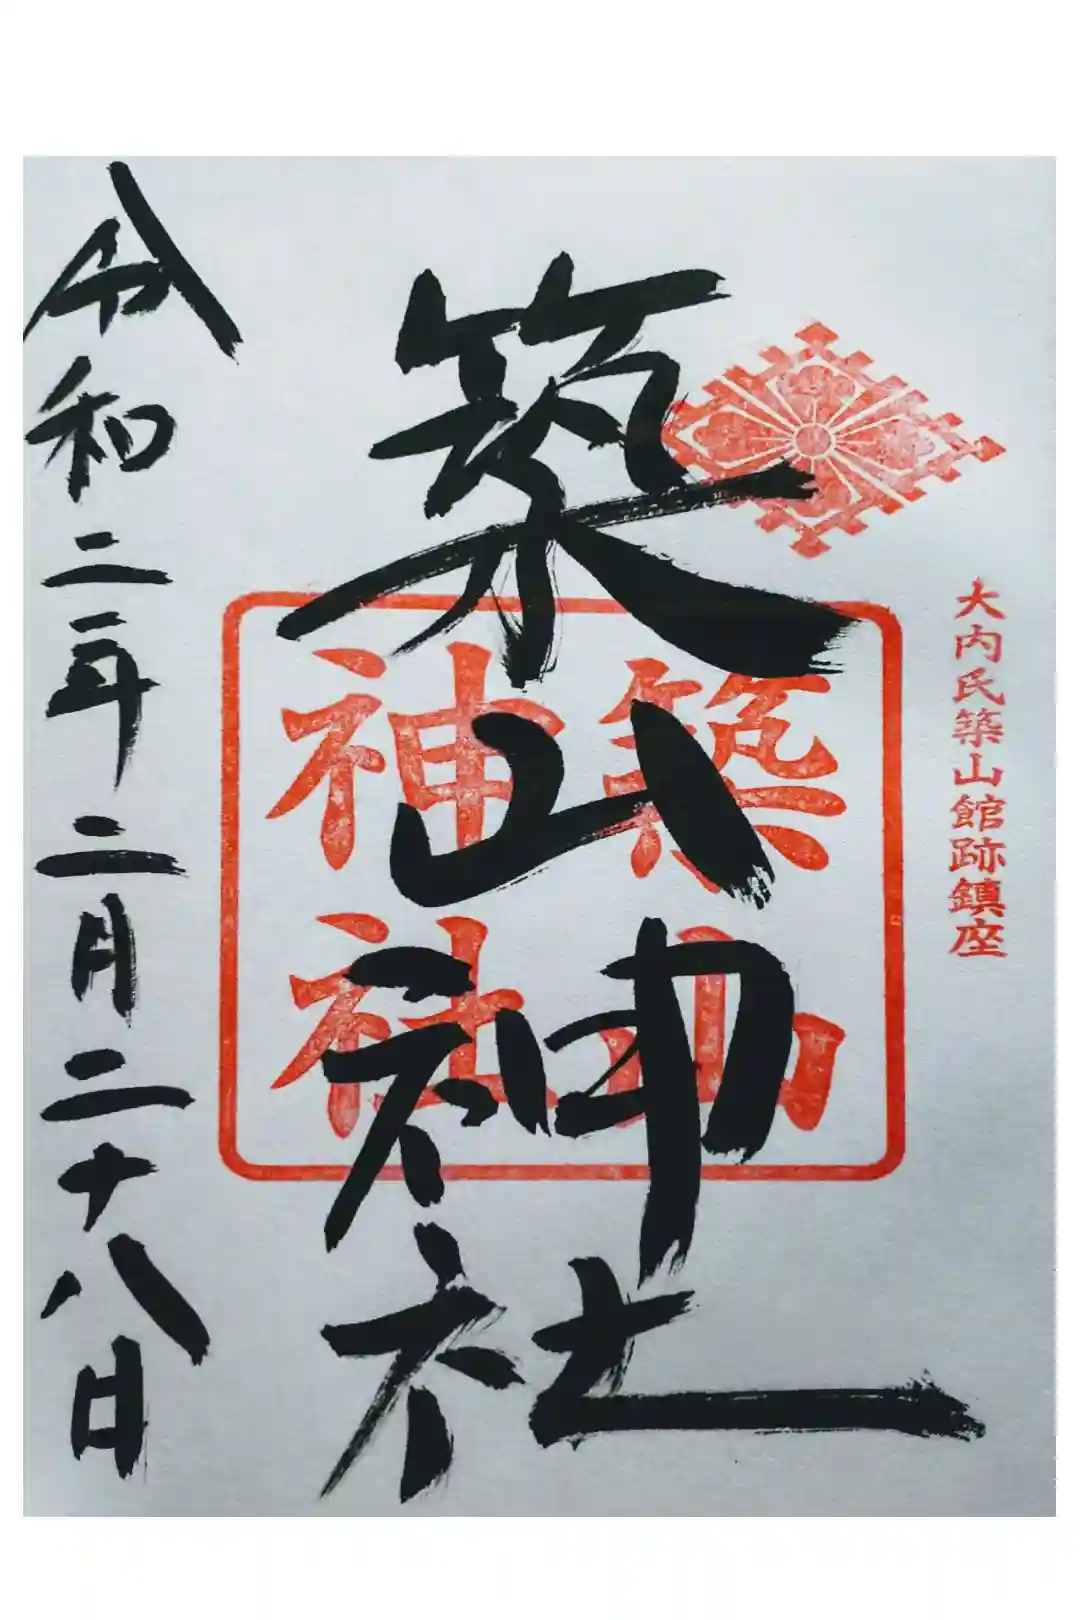 大内氏築山館跡鎮座
築山神社
築山
神社
令和二年二月二十八日